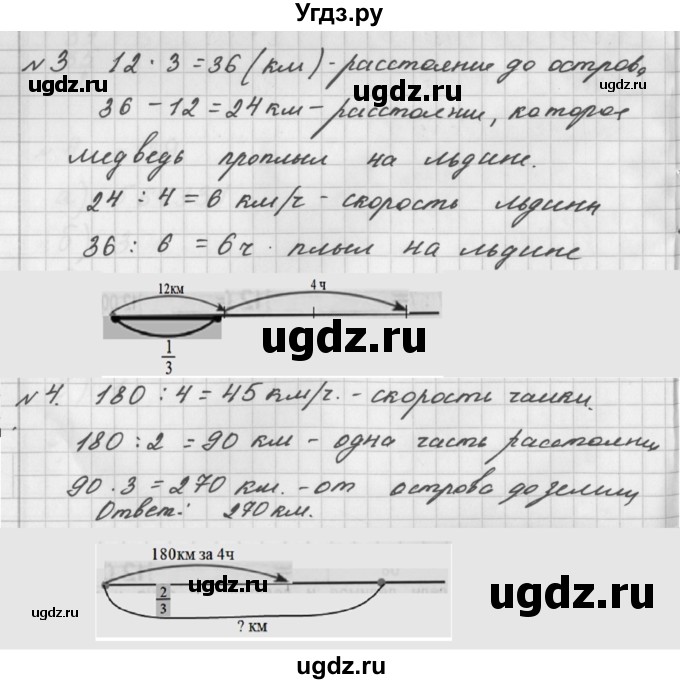 Угдз.ру
№3 12 · 3 = 36 (км) - расстояние до острова
36 - 12 = 24 км - расстояние, которое
медведь проплыл на льдине.
24 : 4 = 6 км/ч - скорость льдины
36 : 6 = 6 ч · плыл на льдине
12км
4 ч
1
3
№4. 180 : 4 = 45 км/ч. - скорость чайки.
180 : 2 = 90 км - одна часть расстояния
90 · 3 = 270 км. - от острова до земли
Ответ: 270 км.
180км за 4ч
2
3
? км
ugdz.ru
ugdz.ru
ugdz.ru
ugdz.ru
ugdz.ru
ugdz.ru
ugdz.ru
ugdz.ru
ugdz.ru
ugdz.ru
ugdz.ru
ugdz.ru
ugdz.ru
ugdz.ru